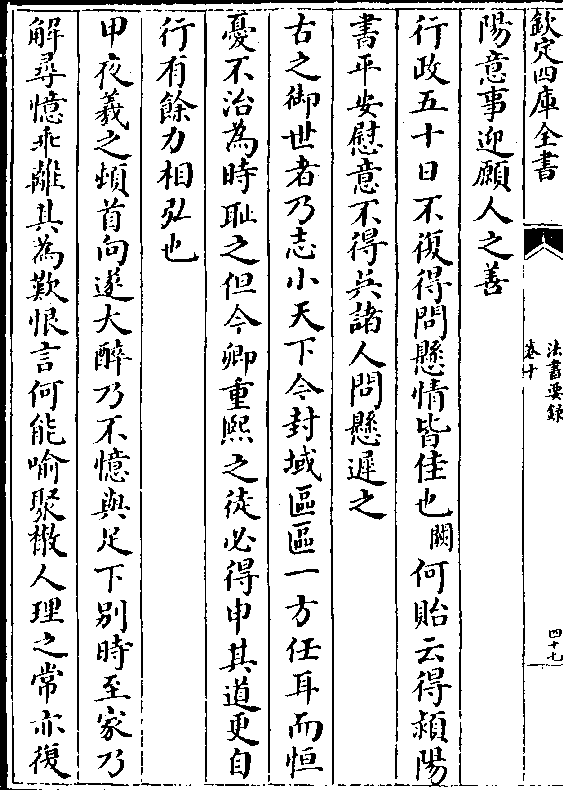 欽定四庫全書
法書要錄
卷十
四十七
陽意事迎願人之善
行政五十日不復得問懸情皆佳也闕何貽云得潁陽
書平安慰意不得吳諸人問懸遲之
古之御世者乃志小天下今封域區區一方任耳而恒
憂不治為時恥之但今卿重熙之徒必得申其道更自
行有餘力相弘也
甲夜羲之頓首向遂大醉乃不憶與足下別時至家乃
解尋憶乖離其為歎恨言何能喻聚散人理之常亦復